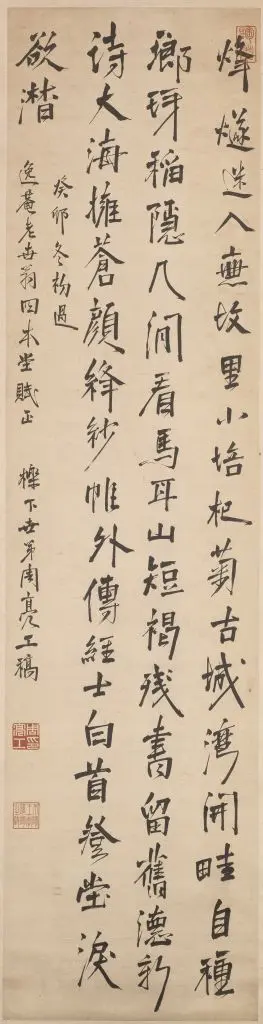 烽燧迷人無故里小培杞菊古城灣開畦自種
瑯玡稻隱几閒看馬耳山短褐殘書留舊德新
詩大海擁蒼顏絳紗帷外傳經士白首登堂淚
欲潸
癸卯冬杪過
逸菴老世翁四本堂賦正
櫟下世弟周亮工稿